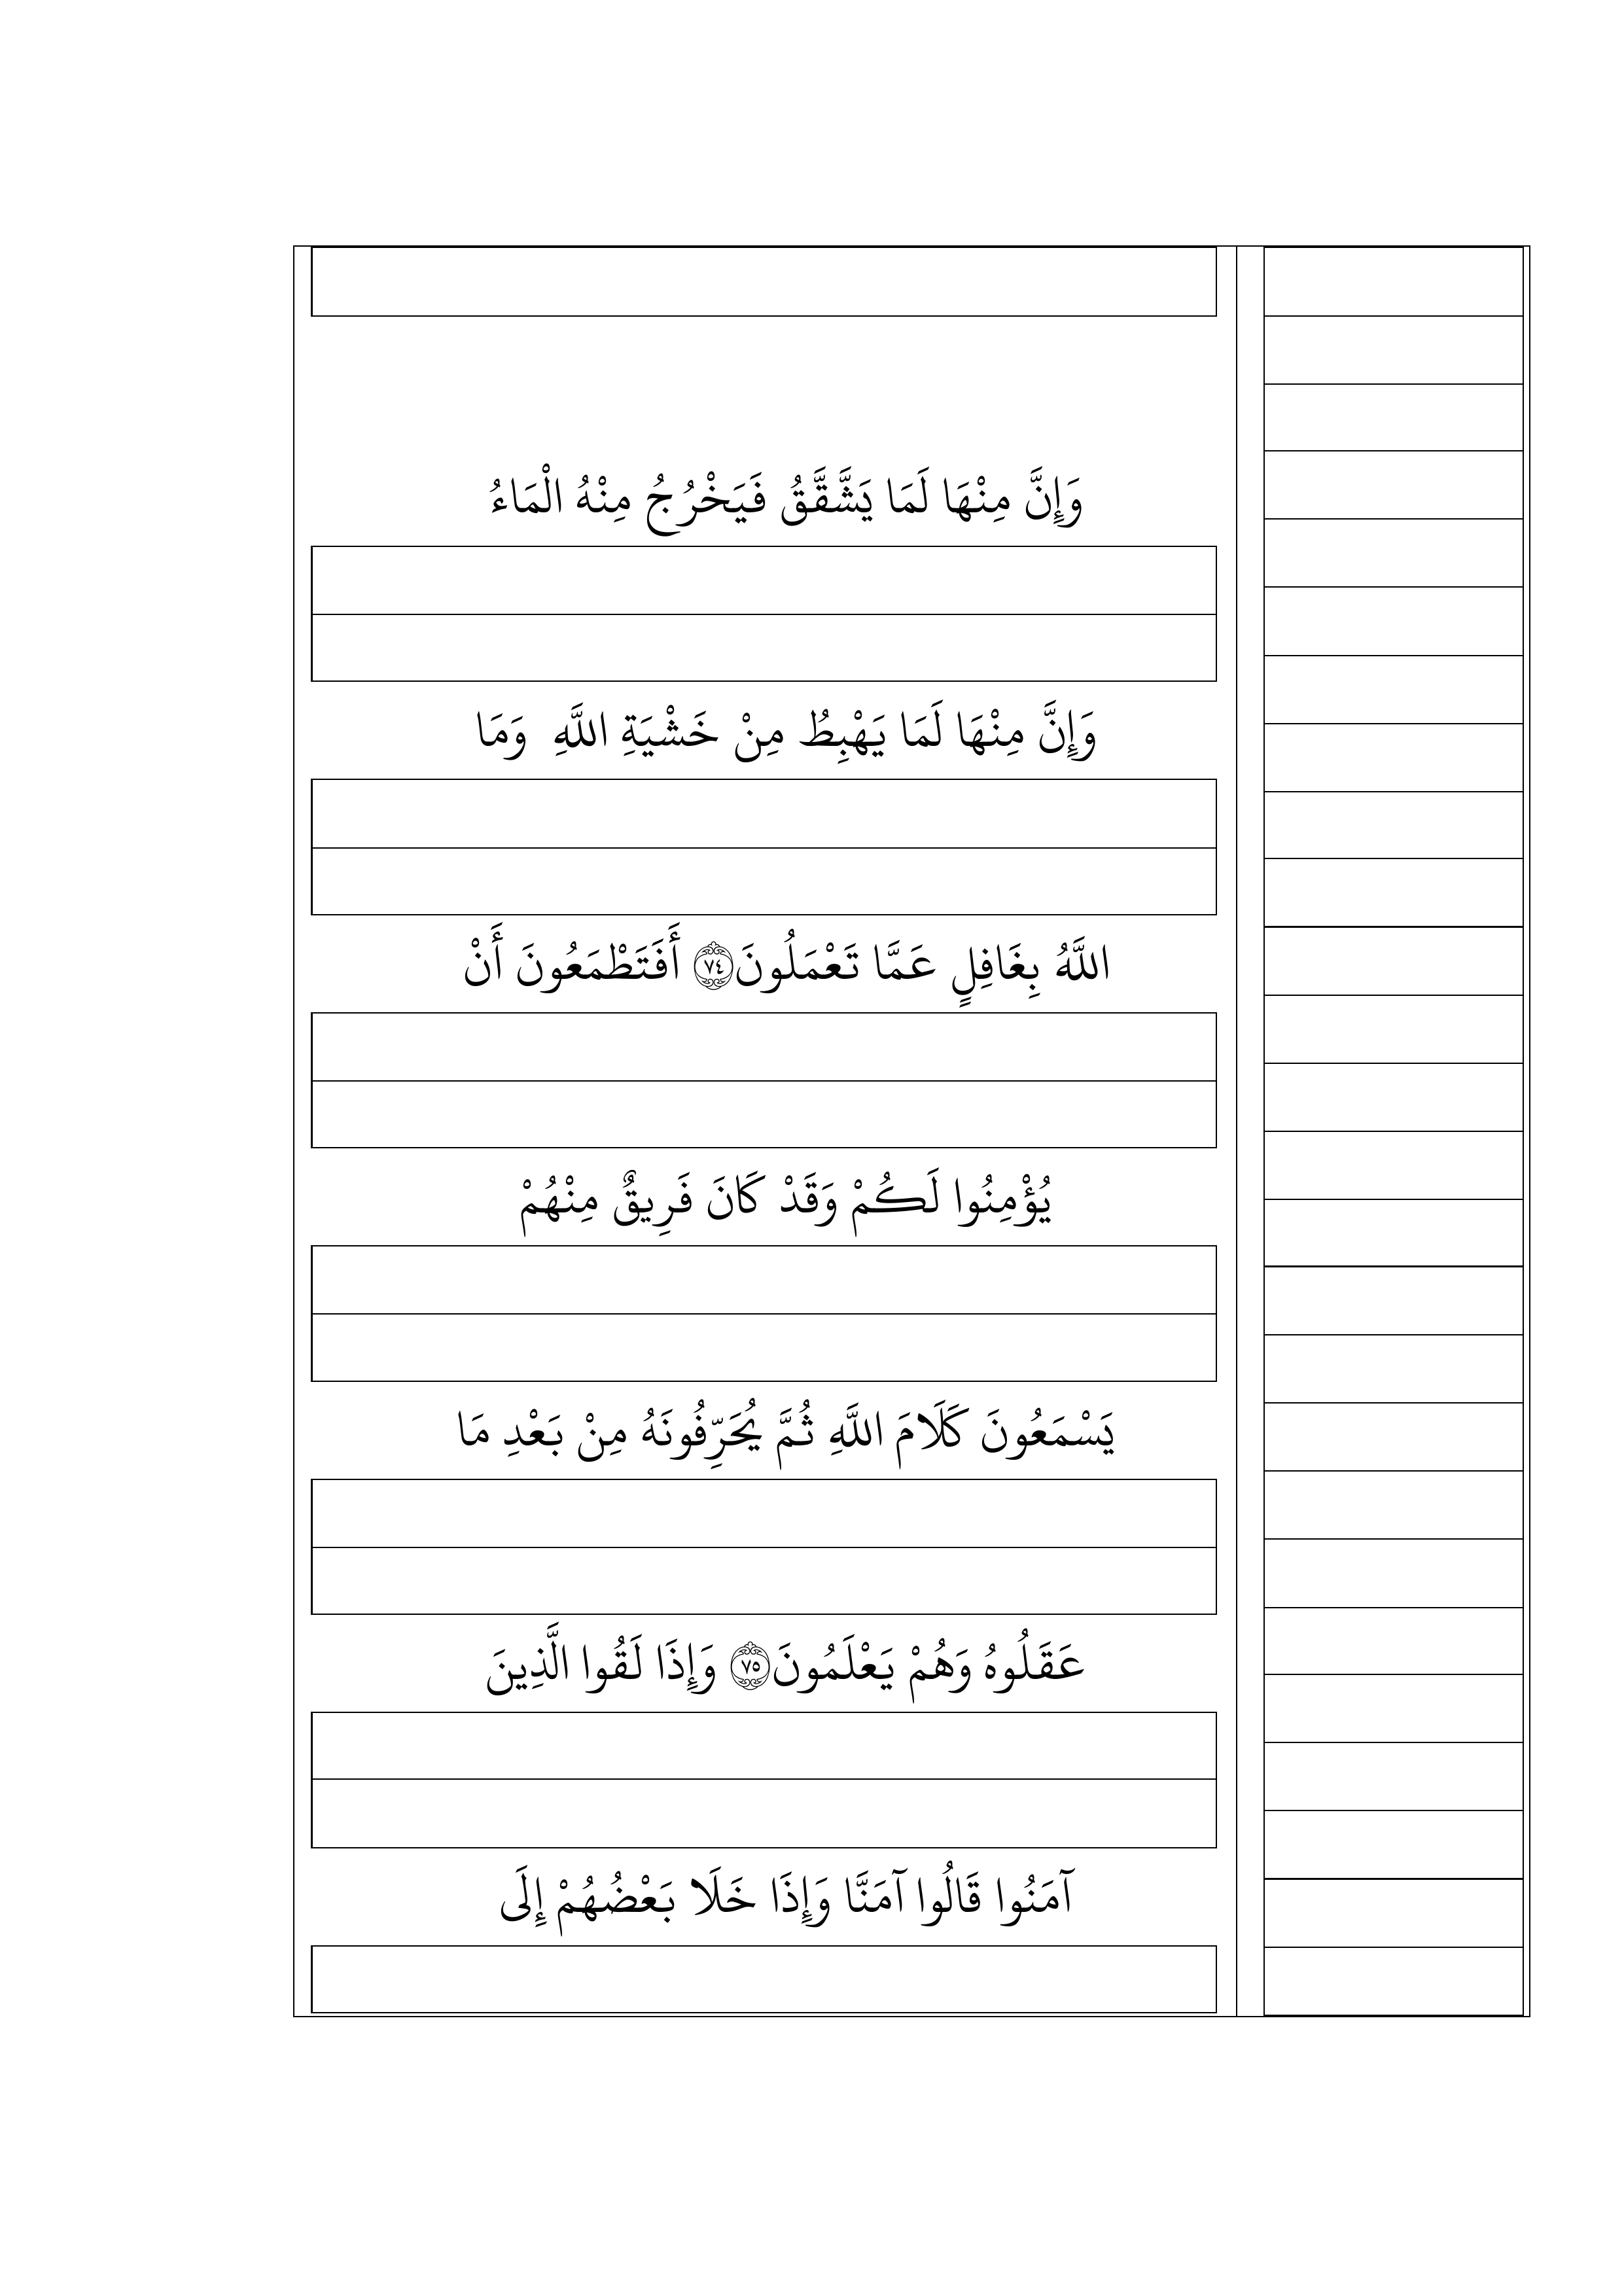 وَإِنَّ مِنْهَا لَمَا يَشَّقَّقُ فَيَخْرُجُ مِنْهُ الْمَاءُ
وَإِنَّ مِنْهَا لَمَا يَهْبِطُ مِنْ خَشْيَةِ اللَّهِ وَمَا
اللَّهُ بِغَافِلٍ عَمَّا تَعْمَلُونَ ۝٧٤ أَفَتَطْمَعُونَ أَنْ
يُؤْمِنُوا لَكُمْ وَقَدْ كَانَ فَرِيقٌ مِنْهُمْ
يَسْمَعُونَ كَلَامَ اللَّهِ ثُمَّ يُحَرِّفُونَهُ مِنْ بَعْدِ مَا
عَقَلُوهُ وَهُمْ يَعْلَمُونَ ۝٧٥ وَإِذَا لَقُوا الَّذِينَ
آمَنُوا قَالُوا آمَنَّا وَإِذَا خَلَا بَعْضُهُمْ إِلَى